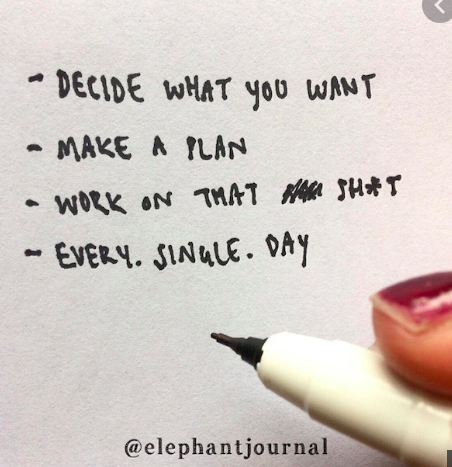 - DECIDE WHAT YOU WANT
- MAKE A PLAN
- WORK ON THAT SH*T
- EVERY. SINGLE. DAY
@elephantjournal